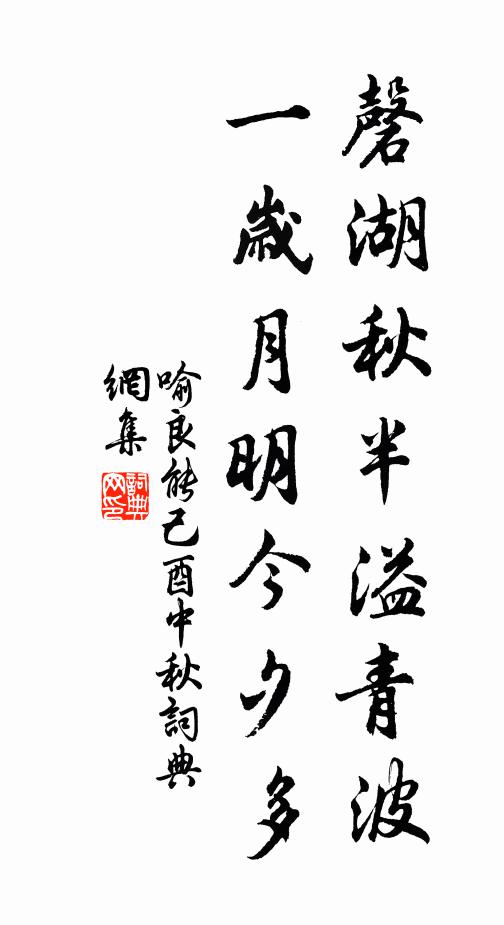 磬湖秋半溢青波
一歲月明今夕多
喻良能己酉中秋詞典
網集
詞典
网印